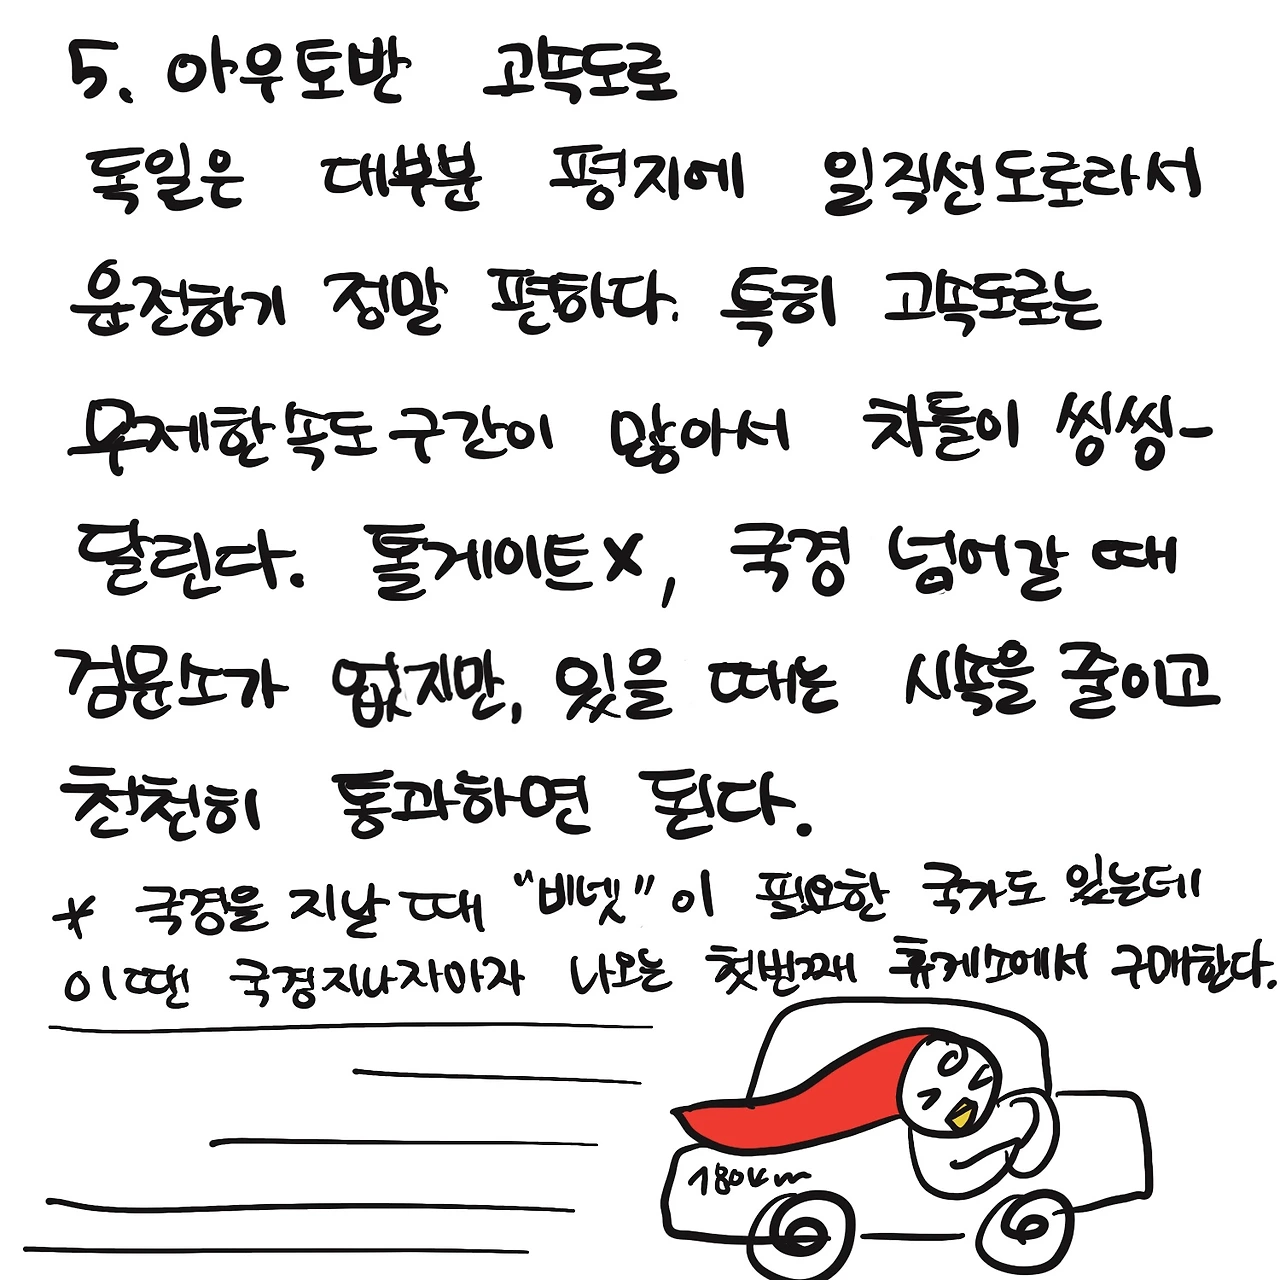 5. 아우토반 고속도로
독일은 대부분 평지에 일직선도로라서
운전하기 정말 편하다. 특히 고속도로는
무제한속도구간이 많아서 차들이 씽씽-
달린다. 톨게이트X, 국경 넘어갈 때
검문소가 없지만, 있을 때는 시속을 줄이고
천천히 통과하면 된다.
* 국경을 지날 때 "비넷"이 필요한 국가도 있는데
이땐 국경지나자마자 나오는 첫번째 휴게소에서 구매한다.
180km